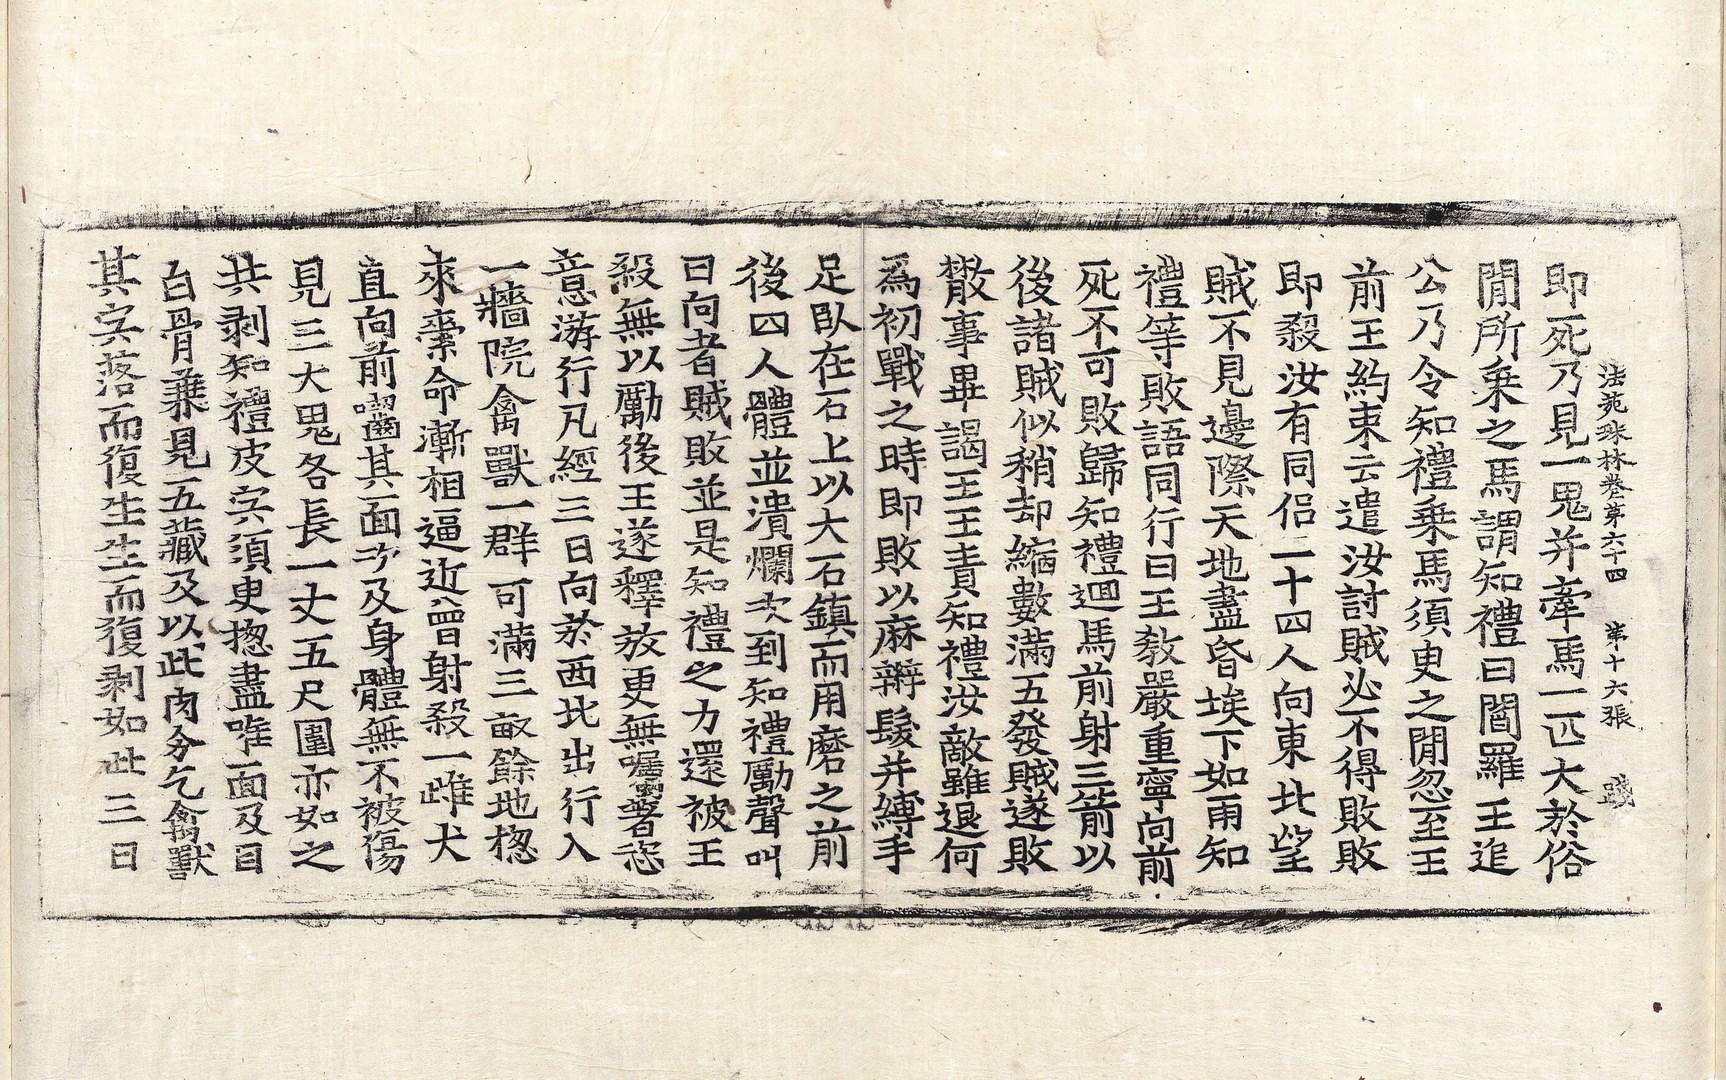 法苑珠林卷第六十四　第十六張　踐
即死乃見一鬼并牽馬一匹大於俗
閒所乗之馬謂知禮曰閻羅王追
公乃令知禮乗馬須臾之閒忽至王
前王約束云遣汝討賊必不得敗敗
即殺汝有同侣二十四人向東北望
賊不見邊際天地盡昏埃下如雨知
禮等敗語同行曰王教嚴重寧向前
死不可敗歸知禮迴馬前射三箭以
後諸賊似稍却縮數滿五發賊遂敗
散事畢謁王王責知禮汝敵雖退何
爲初戰之時即敗以麻辮髮并縛手
足臥在石上以大石鎮而用磨之前
後四人體並潰爛次到知禮勵聲叫
曰向者賊敗並是知禮之力還被王
殺無以勵後王遂釋放更無囑著恣
意游行凡經三日向於西北出行入
一牆院禽獸一群可滿三畝餘地揔
來索命漸相逼近曾射殺一雌犬
直向前嚙其面次及身體無不被傷
見三大鬼各長一丈五尺圍亦如之
共剥知禮皮宍須臾揔盡唯面及目
白骨兼見五藏及以此肉分乞禽獸
其宍落而復生生而復剥如此三日